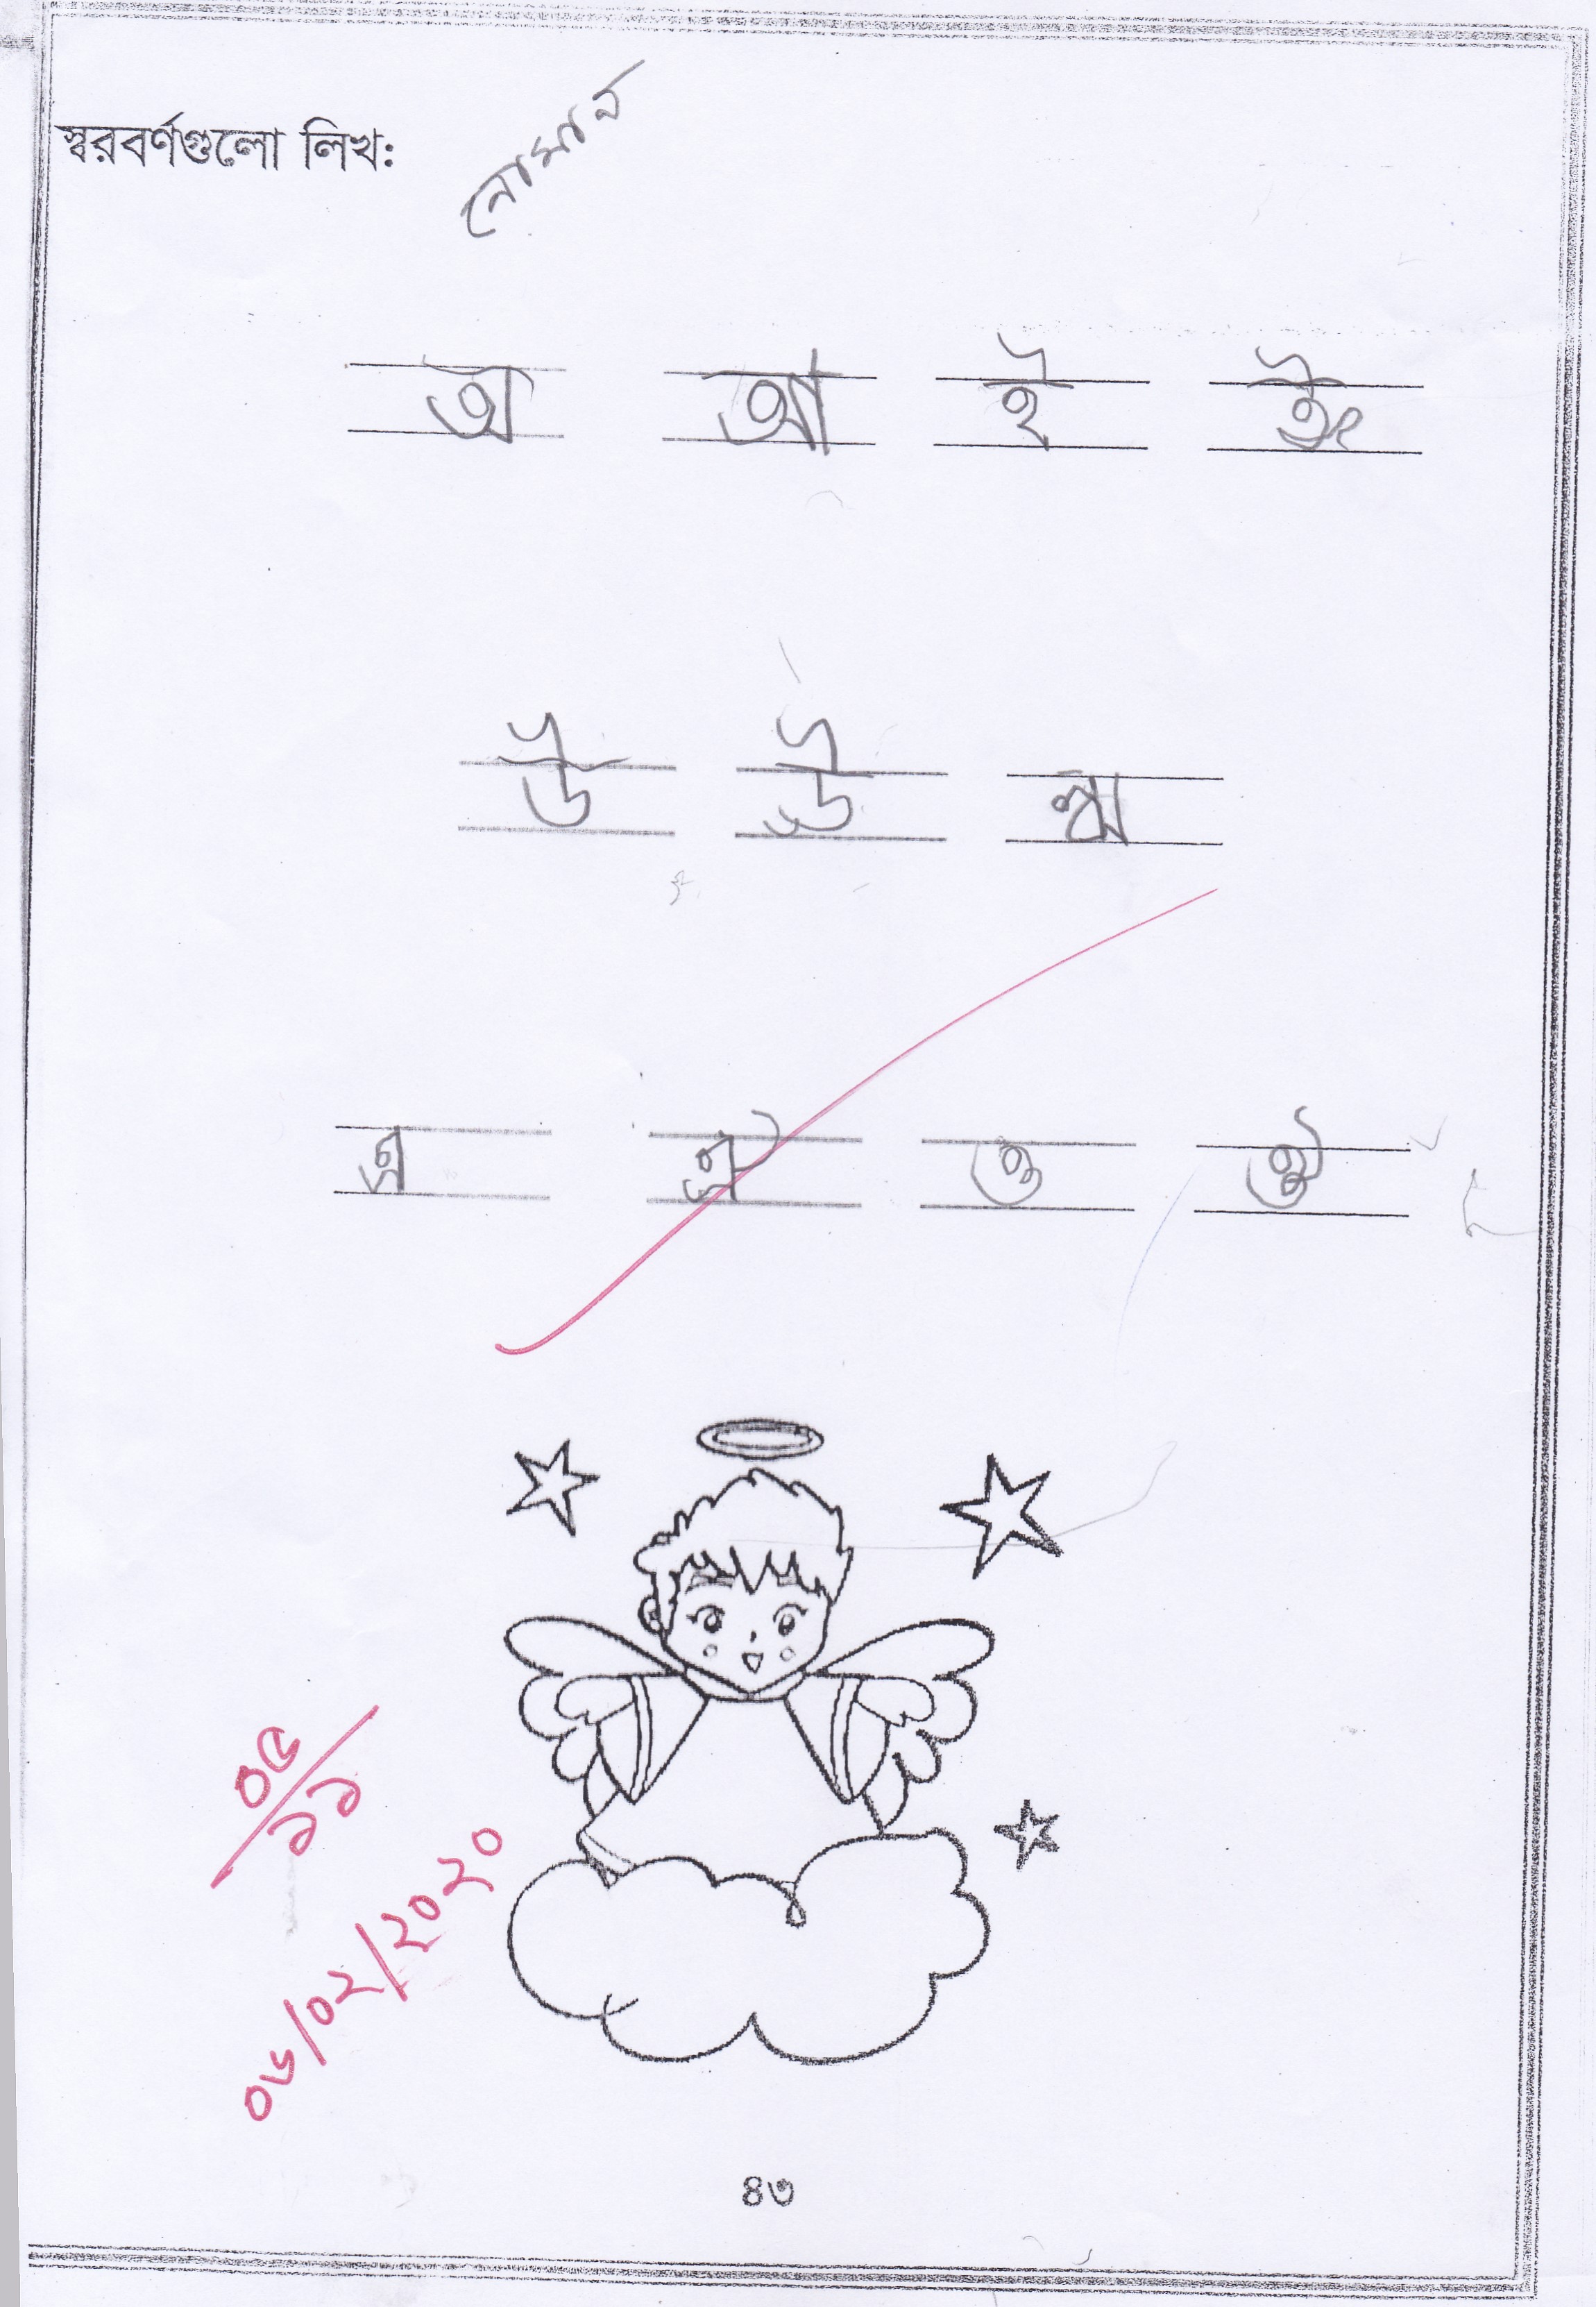 স্বরবর্ণগুলো লিখ:
নোমান
অ আ ই ঈ
উ ঊ ঋ
এ ঐ ও ঔ
০৫/১১
০৬/০২/২০২০
৪৩